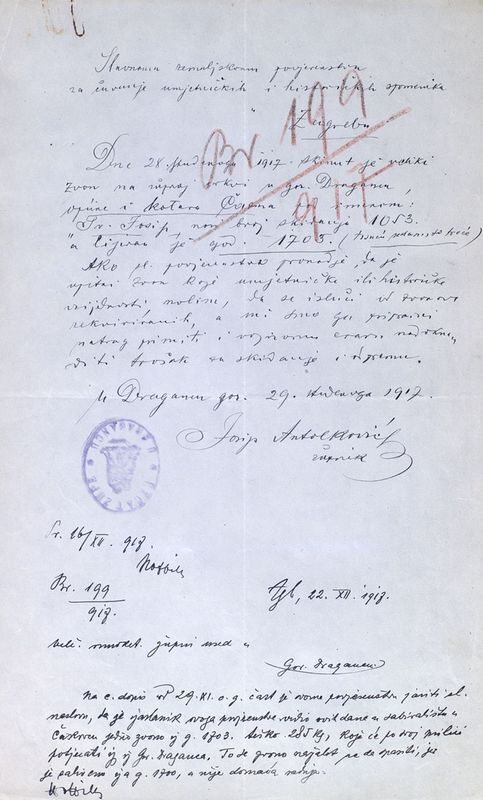 Slavnomu zemaljskomu povjerenstvu
za čuvanje umjetničkih i historičkih spomenika
u
Zagrebu
Br. 199
917
Dne 28. studenoga 1917. skinut je veliki
zvon na župnoj crkvi u gor. Dragancu,
općine i kotara Čazma pod imenom:
Sv. Josip, nosi broj skidanja 1053.
a lijevan je god. 1703. (tisuću sedamsto treće)
Ako sl. povjerenstvo pronadje, da je
upitni zvon koje umjetničke ili historičke
vrijednosti molim, da se izluči iz zvonova
rekviriranih, a mi smo ga pripravni
natrag primiti i vojnomu eraru nadoknaditi
trošak za skidanje i opremu.
U Dragancu gor. 29. studenoga 1917.
Josip Antolković
župnik
PEČAT ŽUPE
U DRAGANCU
Pr. 16/XII. 917.
Br. 199
917.
Zgb, 22. XII. 1917.
župni ured u
Gor. Dragancu
Na c. dopis od 29. XI. o. g. čast je ovome povjerenstvu javiti
naslovu, da je izaslanik ovoga povjerenstva vidio ovih dana u sabiralištu u
Čakovcu jedno zvono iz g. 1703. teško 285 kg, koje će po svoj prilici
potjecati iz Gor. Draganca. To se zvono ne može spasiti, jer
je saliveno iza g. 1700, a nije domaća radnja.